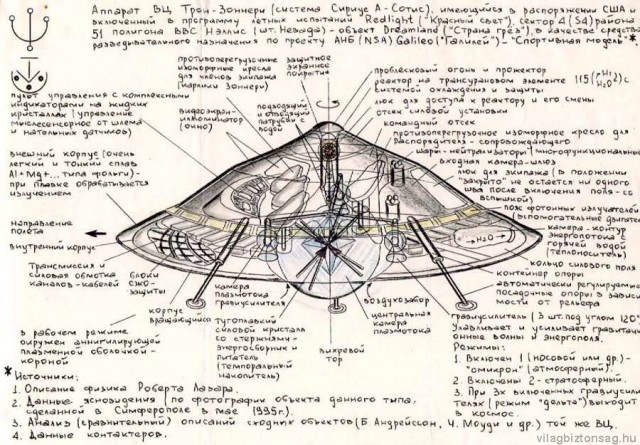 Аппарат ВЦ Трон-Зоннери (система Сириус А-Сотис), имеющийся в распоряжении США и
включенный в программу летных испытаний Redlight ("Красный свет"), сектор 4 (S4) района
51 полигона ВВС Нэллис (шт. Невада) - объект Dreamland ("Страна грёз"), в качестве средства
разведывательного назначения по проекту АНБ (NSA) Galileo ("Галилей") - "Спортивная модель" *
противоперегрузочные
изоморфные кресла
для членов экипажа
(карлики Зоннери)
защитное
экранное
покрытие
проблесковый огонь и прожектор
реактор на трансурановом элементе 115
системой охлаждения и защиты
люк для доступа к реактору и его смены
отсек силовой установки
командный отсек
противоперегрузочное изоморфное кресло для
Распорядителя - сопровождающего
шары-нейтрализаторы (многофункциональные)
входная камера-шлюз
люк для экипажа (в положении
"закрыто" не остается ни одного
шва после включения поля - со
вспышкой)
пояс фотонных излучателей
(вспомогательные двигатели)
камера-контур
энергопотока с
горячей водой
(теплоноситель)
кольцо силового поля
контейнер опоры
автоматически регулируемые
посадочные опоры в зависи-
мости от рельефа
пульт управления с комплексными
индикаторами на жидких
кристаллах (управление
мыслесенсорное от шлема
и нательных датчиков)
видеоэкран-
иллюминатор
(окно)
подводящий и
отводящий
патрубки с
водой
внешний корпус (очень
легкий и тонкий сплав
Al+Mg+... типа фольги) -
при плавке обрабатывается
излучением
направление
полёта
внутренний корпус
H2O
Трансмиссия и
силовая обмотка
каналов-кабелей
блоки
СЖО-
защиты
корпус
вращающийся
камера
плазмотока
гравиусилителя
тугоплавкий
силовой кристалл
со стержнями-
энергосборник и
питатель
(темпоральный
накопитель)
вихревой
тор
воздухозабор
центральная
камера
плазмотока
гравиусилитель (3 шт. под углом 120°
Улавливает и усиливает гравитаци-
онные волны и энергополя.
Режимы:
1. Включен 1 (носовой или др.)-
"омикрон" (атмосферный).
2. Включены 2 - стратосферный.
3. При 3х включенных гравиусили-
телях (режим "дельта") выходит
в космос.
в рабочем режиме
окружен аннигилирующей
плазменной оболочкой-
короной
* Источники:
1. Описание физика Роберта Лазара.
2. Данные ясновидения (по фотографии объекта данного типа,
сделанной в Симферополе в мае 1995г.).
3. Анализ (сравнительный) описаний сходных объектов (Б. Андрейссон, Ч. Моуди и др.) той же ВЦ.
4. Данные контактеров.
vilagbiztonsag.hu